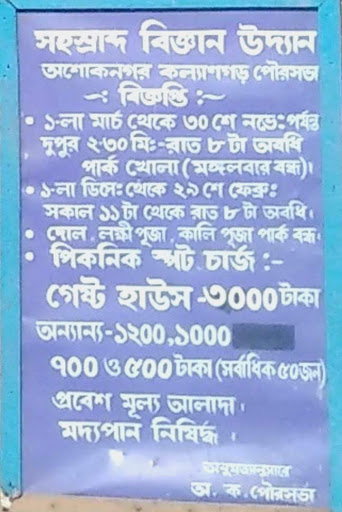 সহস্রাব্দ বিজ্ঞান উদ্যান
অশোকনগর কল্যাণগড় পৌরসভা
—ঃ বিজ্ঞপ্তি ঃ—
• ১-লা মার্চ থেকে ৩০ শে নভেঃ পর্যন্ত
দুপুর ২-৩০ মিঃ-রাত ৮ টা অবধি
পার্ক খোলা (মঙ্গলবার বন্ধ)।
• ১-লা ডিসেঃ থেকে ২৯ শে ফেব্রুঃ
সকাল ১১ টা থেকে রাত ৮ টা অবধি।
• দোল, লক্ষ্মী পূজা, কালি পূজা পার্ক বন্ধ।
• পিকনিক স্পট চার্জ ঃ-
গেষ্ট হাউস -৩০০০ টাকা
অন্যান্য-১২০০, ১০০০
৭০০ ও ৫০০ টাকা (সর্বাধিক ৫০ জন)
প্রবেশ মূল্য আলাদা।
মদ্যপান নিষিদ্ধ।
অনুমত্যনুসারে
অ. ক. পৌরসভা